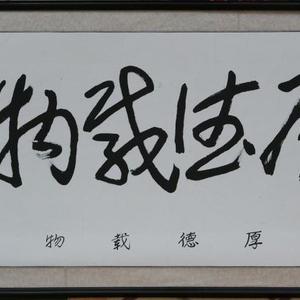 厚德载物
厚德载物